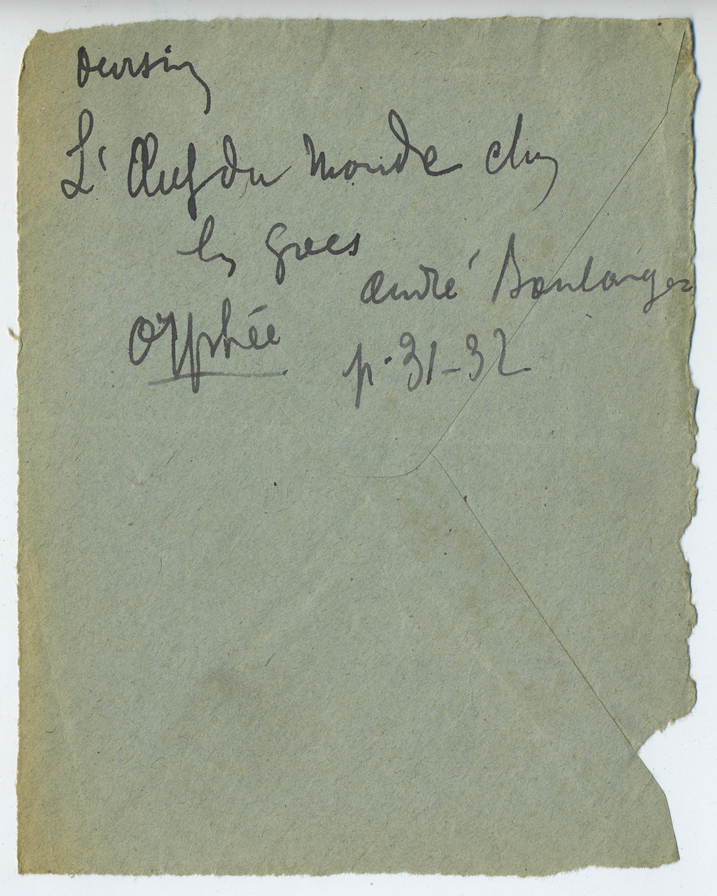 oursin
L'Œuf du Monde chez
les grecs
André Boulanger
Orphée
p. 31-32